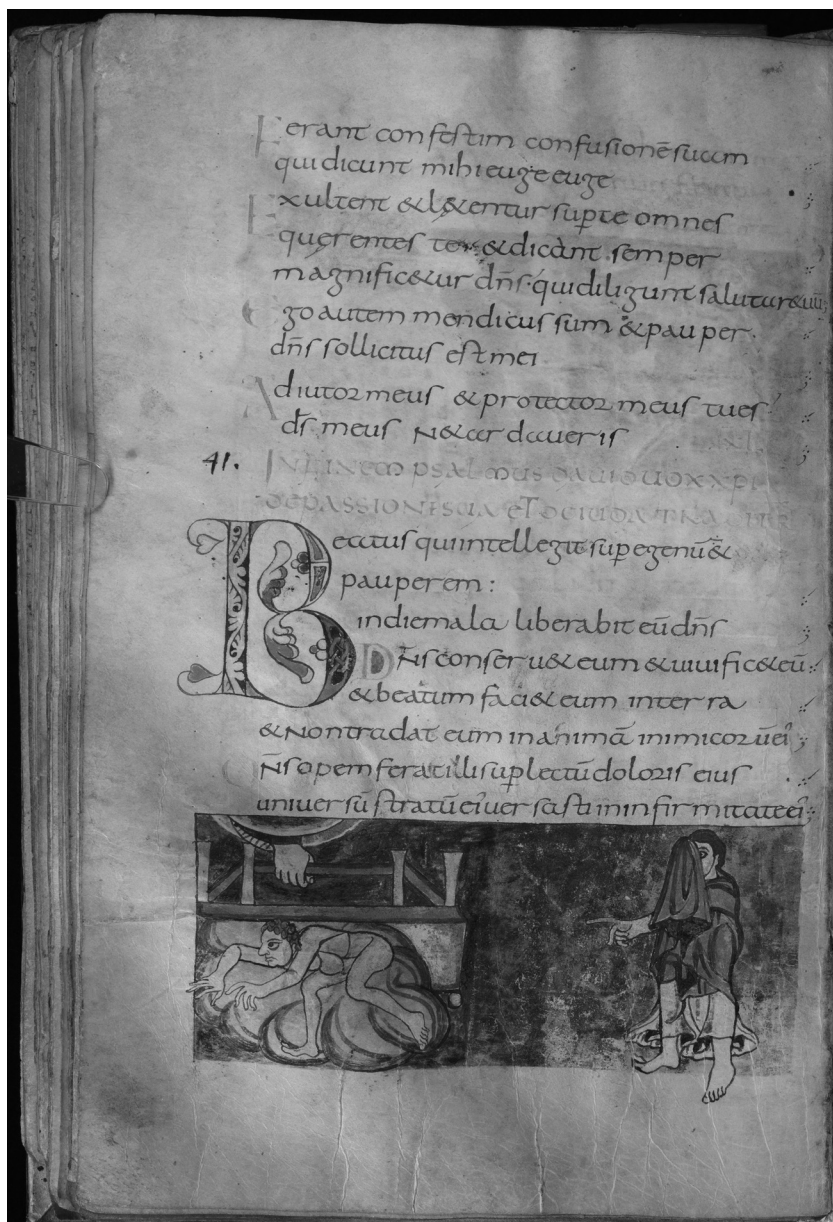 Ferant confestim confusionē suam
qui dicunt mihi euge euge
Exultent & l&entur sup te omnes
querentes te & dicant semper
magnific&ur dn̄s qui diligunt salutare
Ego autem mendicus sum & pauper
dn̄s sollicitus est mei
Adiutor meus & protector meus tu es
ds̄ meus N& ardaueris
41. IN FINEM PSALMUS DAUID UOX XPI
DE PASSIONE SUA ET DE IUDA
Beatus qui intellegit sup egenū &
pauperem:
in die mala liberabit eū dn̄s
DN̄s conseru& eum & uiuific& eū
& beatum faci& eum in terra
& Non tradat eum in animā inimicor̄ ei
N̄s opem ferat illi sup lectū doloris eius
uniuersū stratū ei uersasti in infirmitate ei